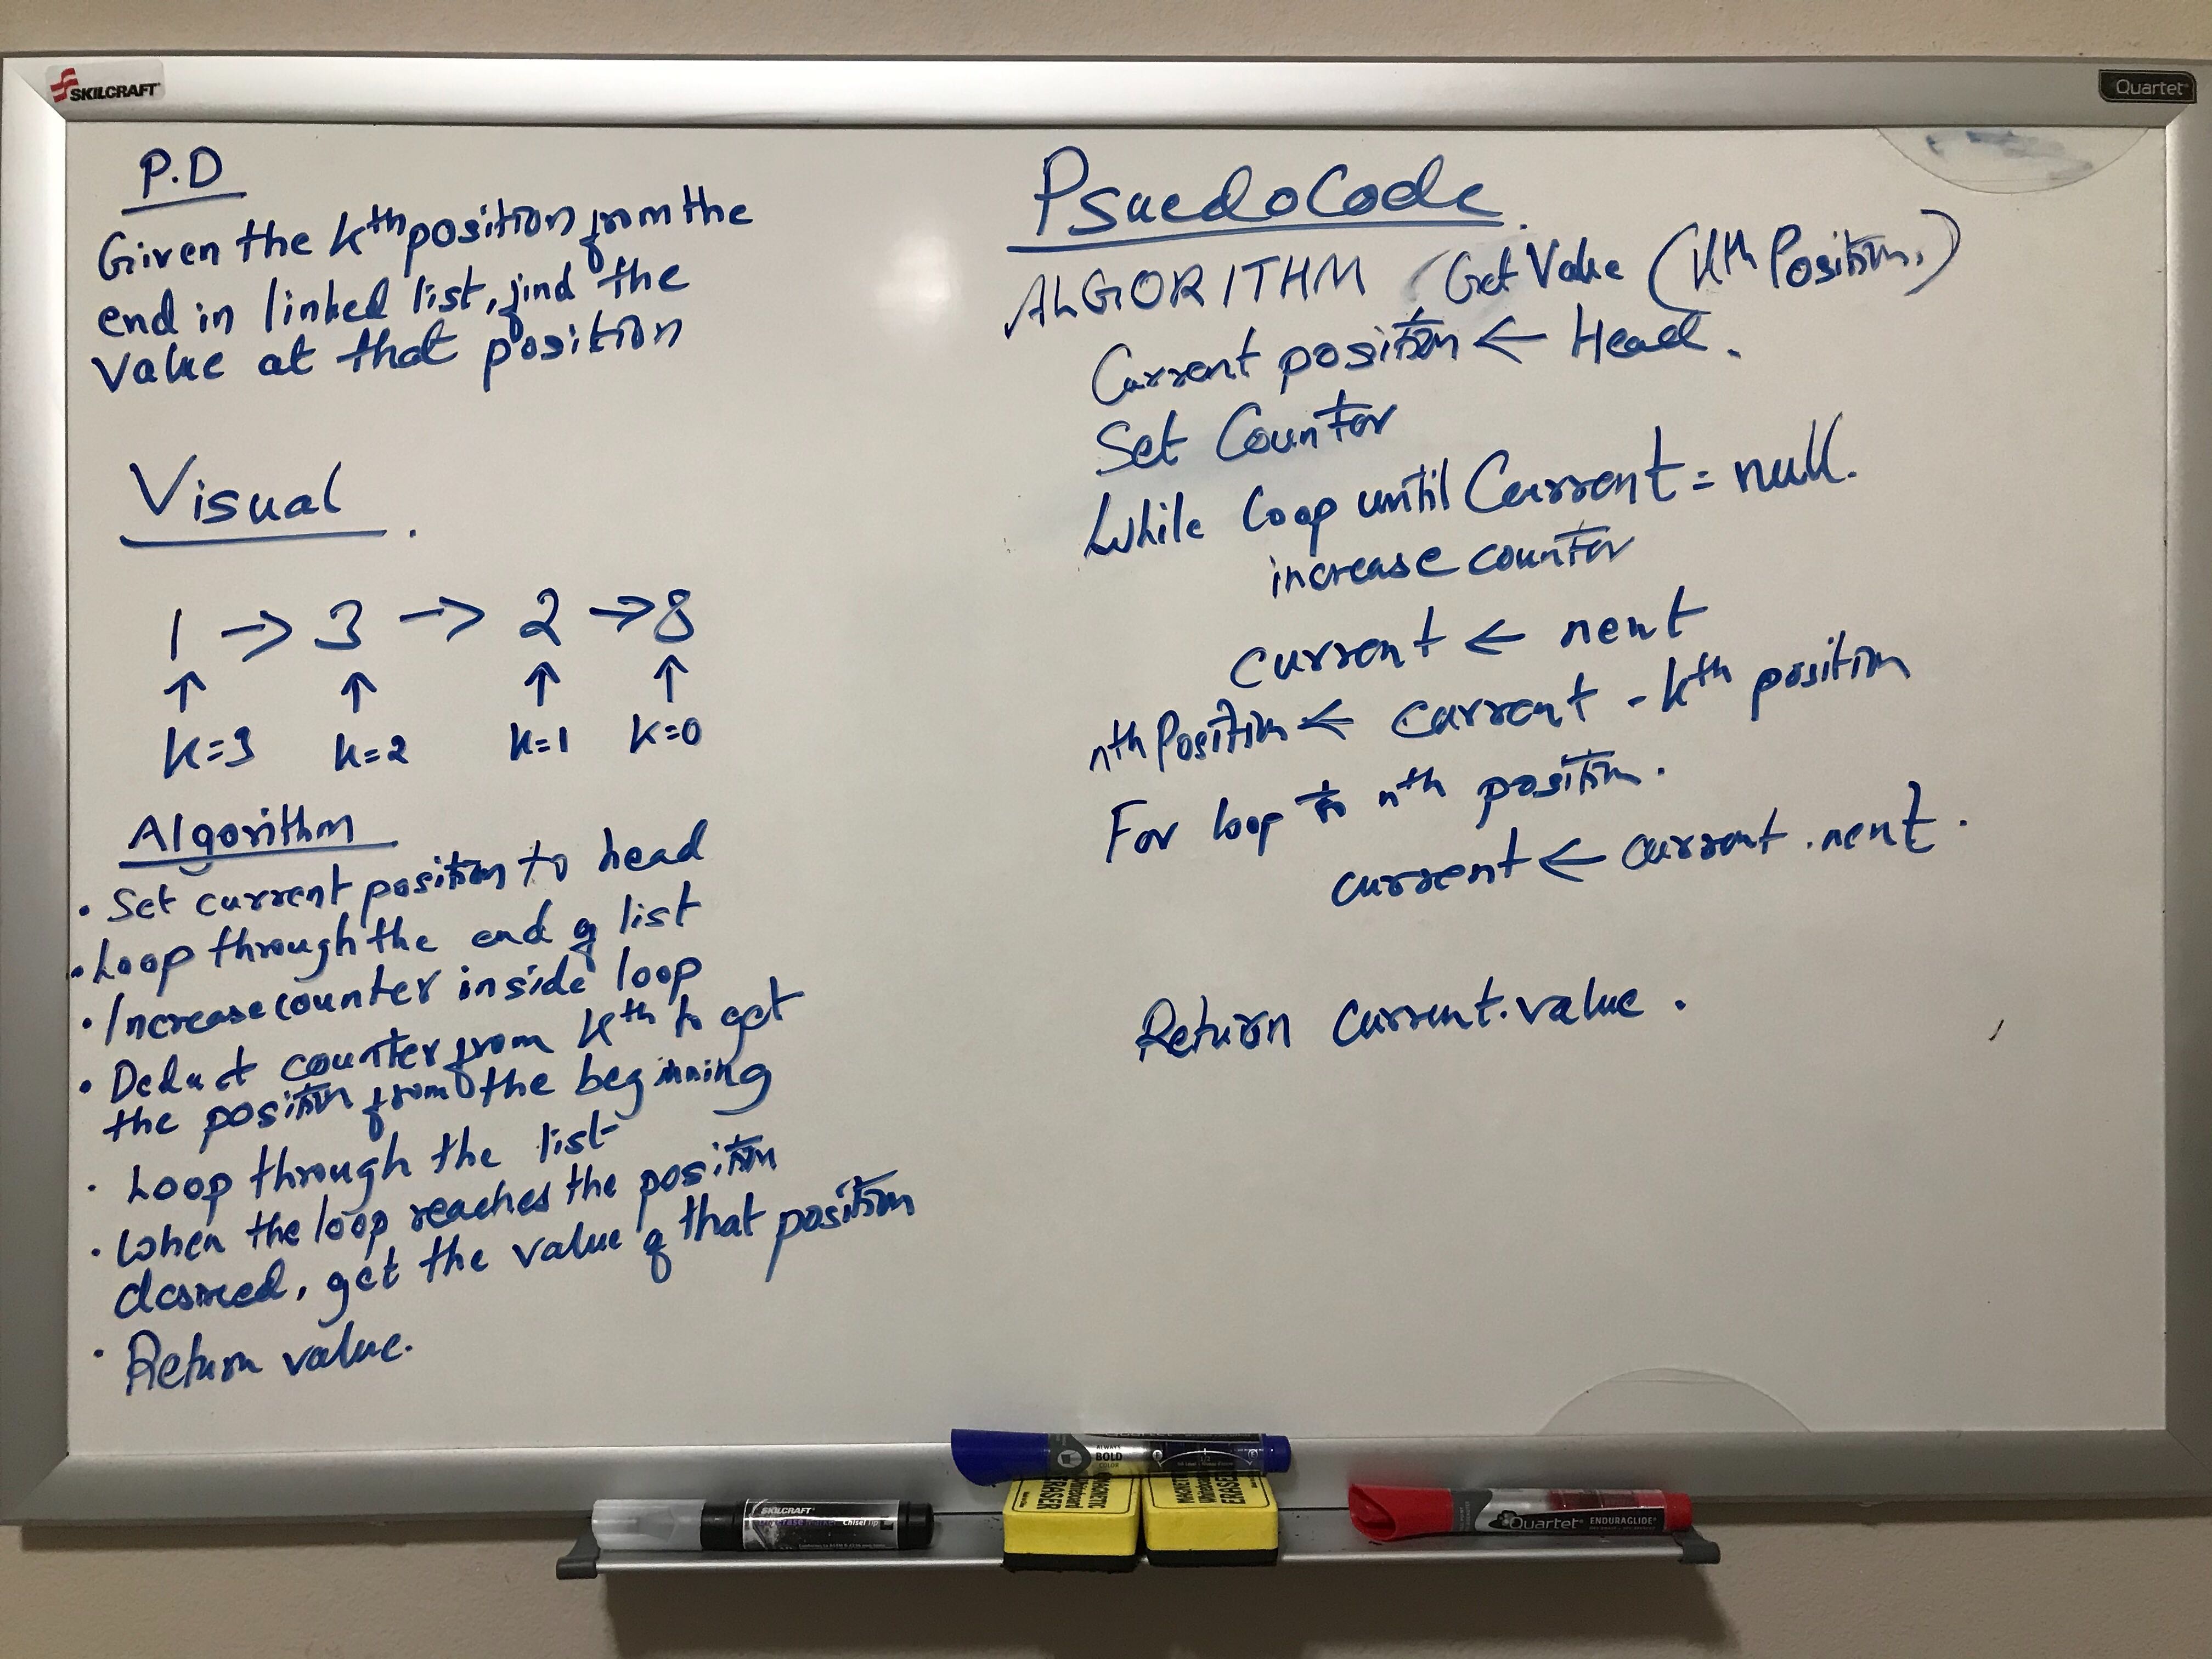 SKILCRAFT
Quartet
P.D
Given the kth position from the
end in linked list, find the
value at that position
Visual.
1 -> 3 -> 2 -> 8
↑ ↑ ↑ ↑
k=3 k=2 k=1 k=0
Algorithm
• Set current position to head
• Loop through the end of list
• Increase counter inside loop
• Deduct counter from kth to get
the position from the beginning
• Loop through the list
• When the loop reaches the position
desired, get the value of that position
• Return value.
PsuedoCode.
ALGORITHM Get Value (kth Position.)
Current position <- Head.
Set Counter
While loop until Current = null.
increase counter
current <- next
nth Position <- current - kth position
For loop to nth position.
current <- current.next.
Return current.value.
BOLD
COLOR
SKILCRAFT
Chisel Tip
MAGNETIC
Whiteboard
ERASER
MAGNETIC
Whiteboard
ERASER
Quartet ENDURAGLIDE